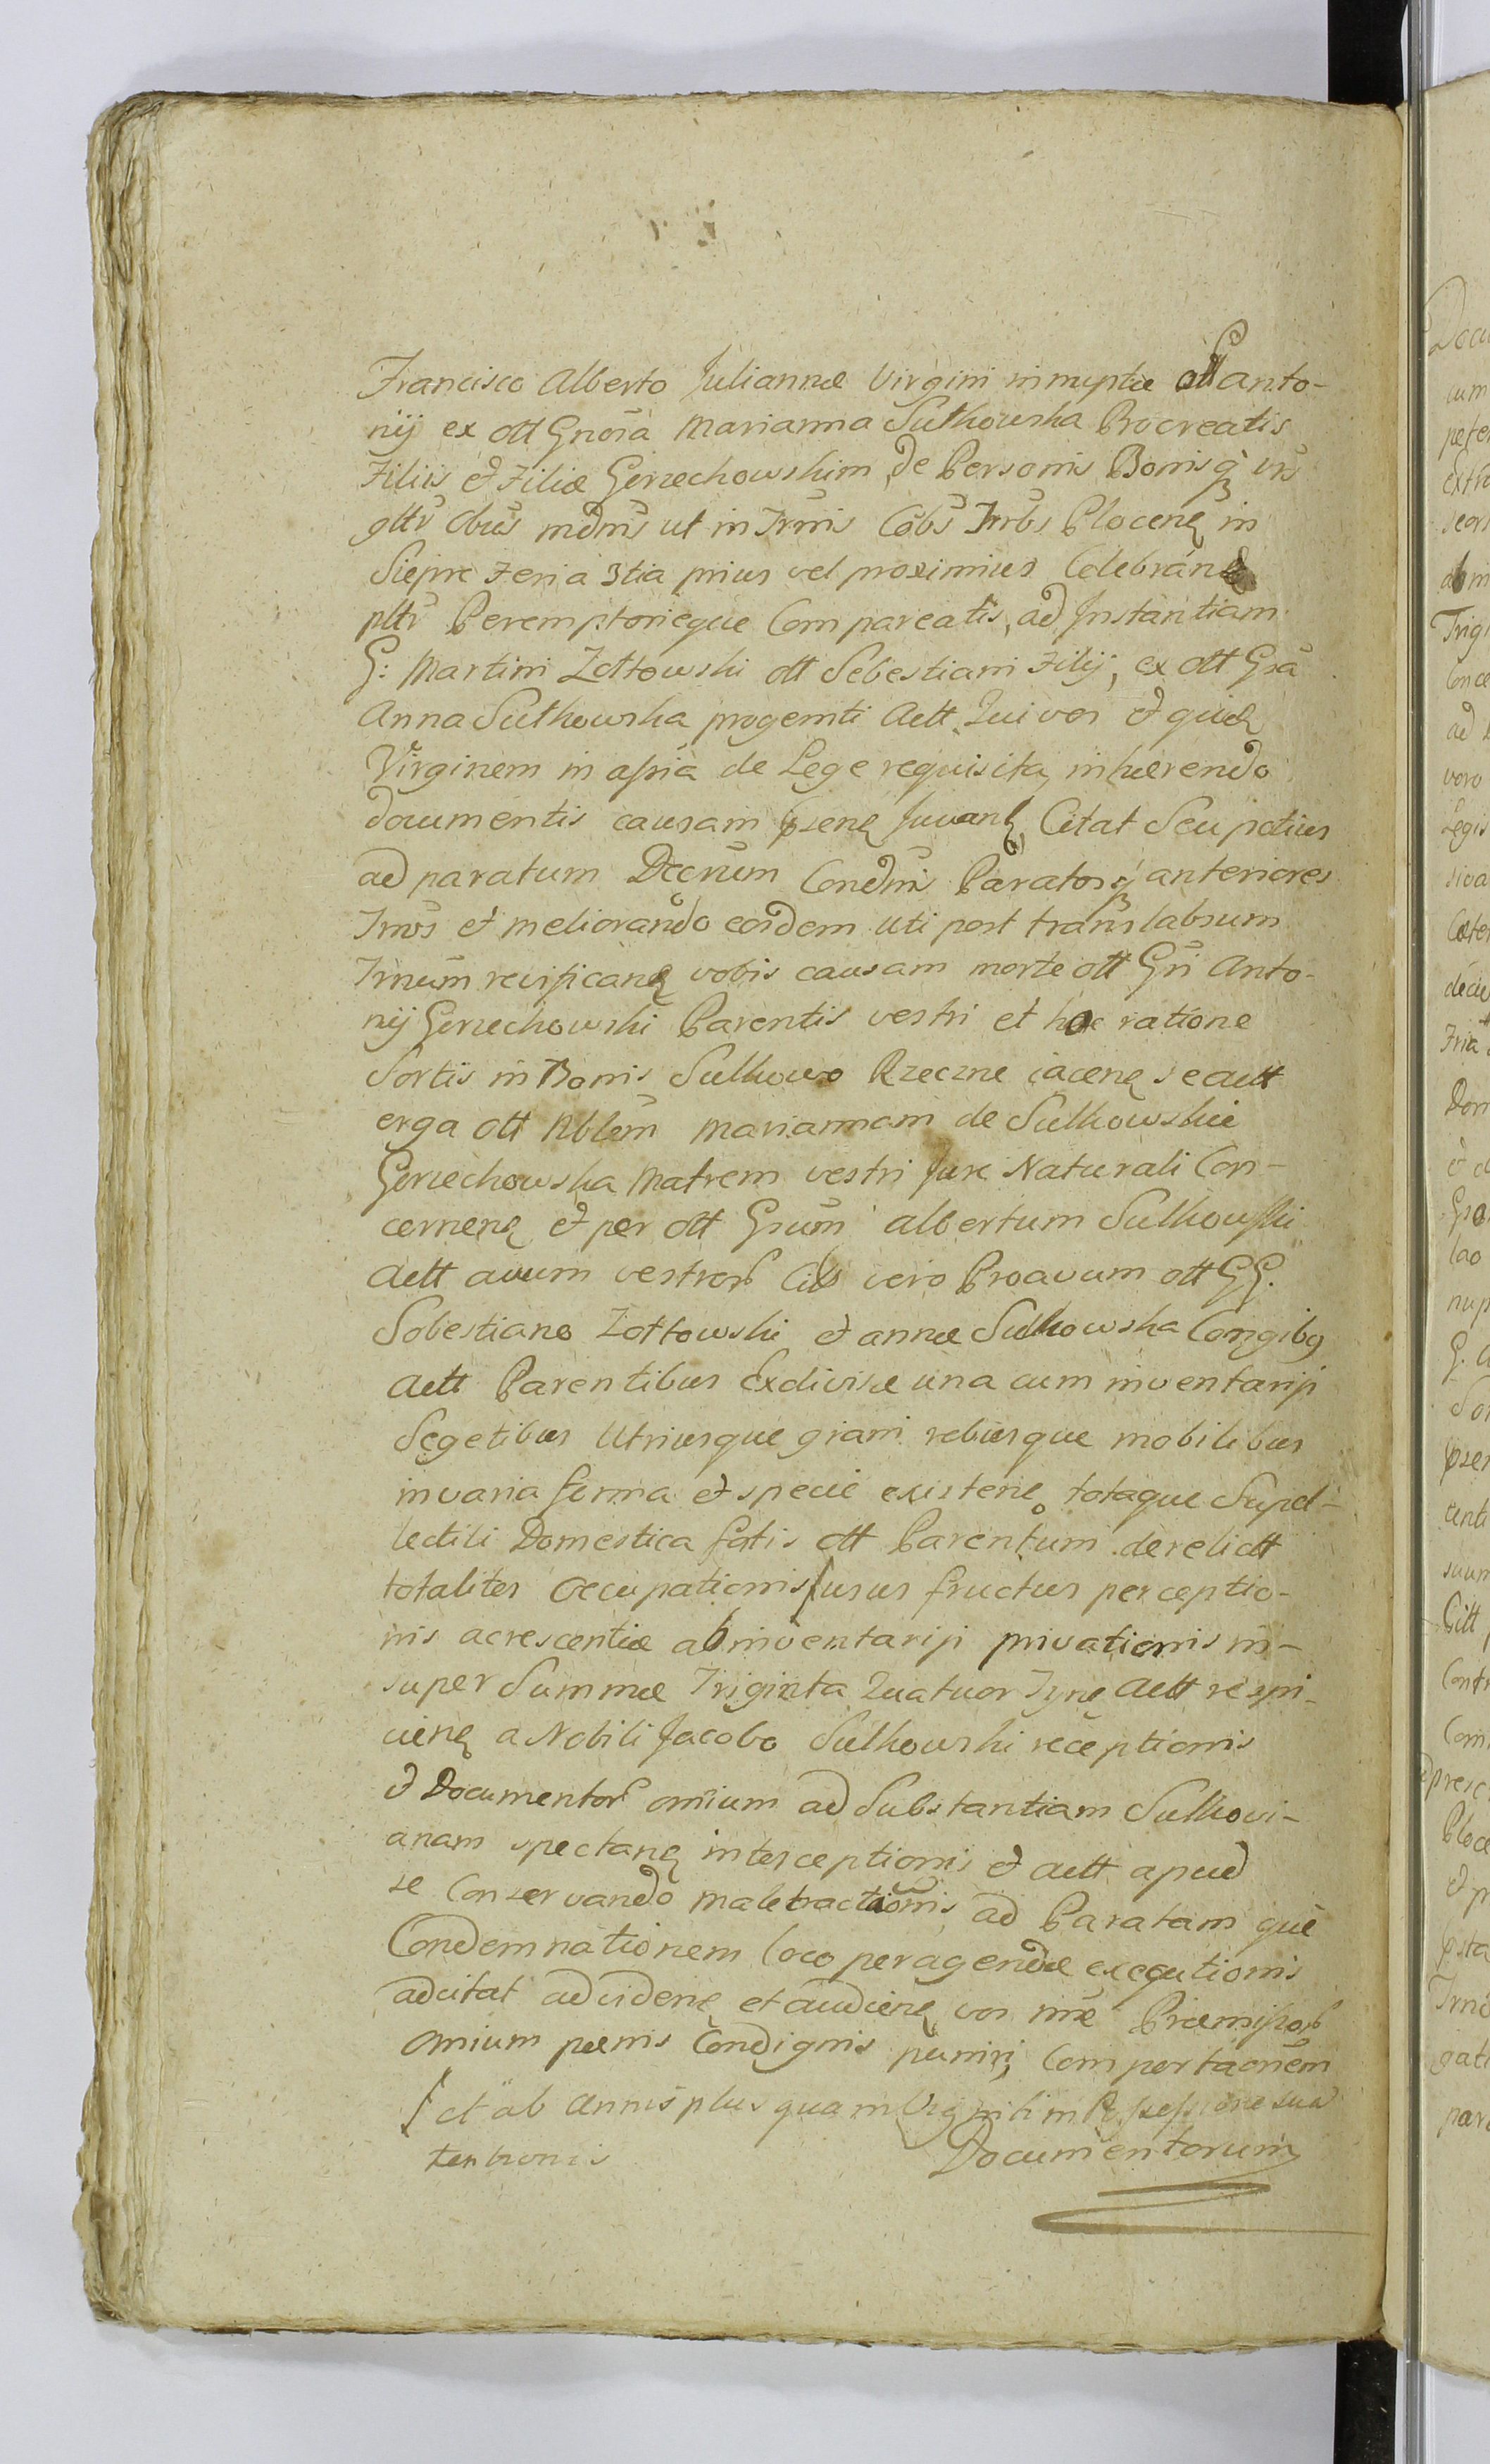 Francisco Alberto Juliannæ Virgini innuptæ olt Anto-
nij ex olt Gnosa Marianna Sutkowska Procreatis
Filiis et Filiæ Gerzechowskim, de Personis Bonisq vris
gltr obus mdms ut in Trmis Cobs Trrbs Plocenę in
Siepre Feria 3tia prius vel proximius Celebran
pltr Peremptorieque Compareatis, ad Instantiam
G: Martini Zołtowski olt Sebestiani Filij, ex olt Gsa
Anna Sutkowska progeniti Actt. Qui vos et quidę
Virginem in assia de Lege requisita, inhærendo
documentis causam psenę Juvanę, Citat Seu potius
ad paratum Decrum Condmi Paratosq anteriores
Trnos et meliorando eosdem uti post translabsum
Trnum reificanę vobis causam morte olt Gsi Anto-
nij Gerzechowski Parentis vestri et hac ratione
Sortis in Bonis Sulkowo Rzeczne iacenę se actt
erga olt Nblem Mariannam de Sulkowskie
Gerzechowska Matrem vestri Jure Naturali Con-
cernenę et per olt Gsum Albertum Sulkowski
Actt avum vestror Cils vero Proavum olt GG.
Sobestiano Zołtowski et Annæ Sulkowska Congibq
Actt Parentibus Exdivisæ una cum inventarijs
Segetibus Utriusque grani rebusque mobilibus
in varia forma et specie existenę totaque Supel-
lectili Domestica fatis olt Parentum derelictt
totaliter Occupationis usus fructus perceptio-
nis acrescentiæ ab inventarijs privationis in-
super Summæ Triginta Quatuor Tynę Actt respi-
cienę a Nobili Jacobo Sulkowski receptionis
et Documentor omium ad Substantiam Sulkovi-
anam spectanę interceptionis et actt apud
se Conservando maletractionis, ad Paratam que
Condemnationem loco peragendæ executionis
adcitat ad videnę et audienę vos rne Præmissor
omium pænis Condignis puniri, Comportaonem
et ab Annis plus quam Viginti in Possessione sua
tentionis
Documentorum